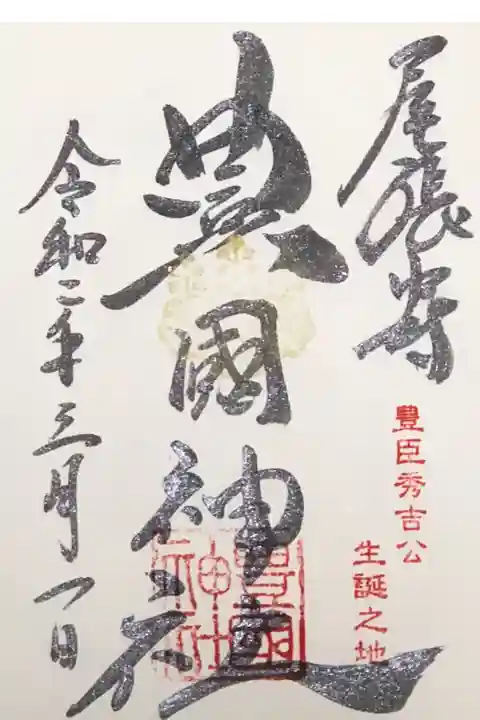 尾張中村
豊臣秀吉公
生誕之地
豊國神社
豊國
神社
令和二年三月一日